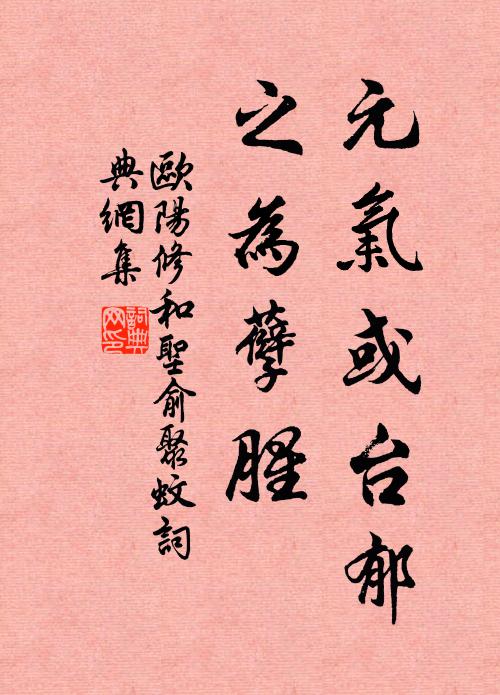 元氣或台郁
之為孽腥
歐陽修和聖俞聚蚊詞
典網集
詞典
网印